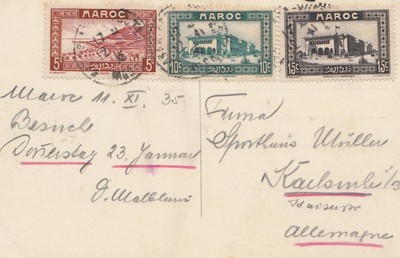 MAROC
5c
MAROC
10c
MAROC
15c
Maroc 11. XI. 35
Besuch
Donerstag 23. Januar
Firma
Sporthaus Müller
Karlsruhe i/B
Allemagne